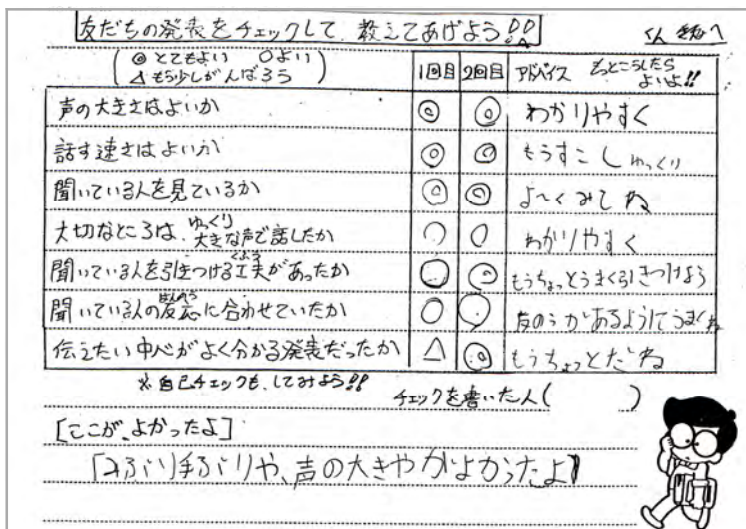 友だちの発表をチェックして、教えてあげよう!!
さん
(◎とてもよい ○よい
△もう少しがんばろう)
1回目 2回目 アドバイス もっとこうしたらよいよ!!
声の大きさはよいか ◎ ◎ わかりやすく
話す速さはよいか ◎ ◎ もうすこしゆっくり
聞いている人を見ているか ◎ ◎ よ〜くみてね
大切なところは、ゆっくり大きな声で話したか ○ ○ わかりやすく
聞いている人を引きつける工夫(くふう)があったか ○ ◎ もうちょっとうまくひきつけよう
聞いている人の反応(はんのう)に合わせていたか ○ ○ 反のうがあるようにうまくね
伝えたい中心がよく分かる発表だったか △ ◎ もうちょっとだね
※自己チェックも、してみよう!!
チェックを書いた人( )
[ここが、よかったよ]
「みぶり手ぶりや、声の大きやかよかったよ」